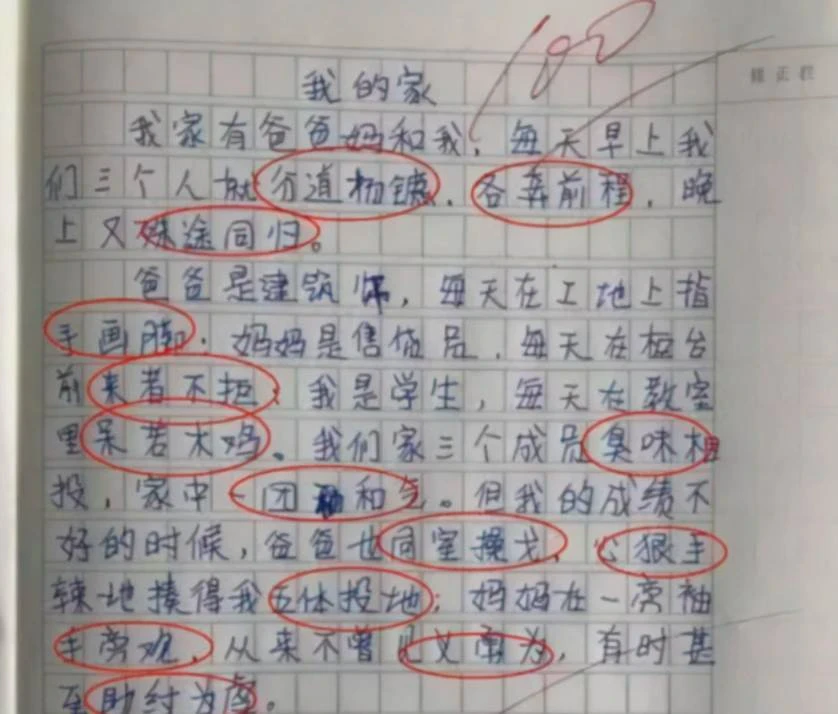 100
修正栏
我的家
我家有爸爸妈和我，每天早上我
们三个人就分道杨镳，各奔前程，晚
上又殊途同归。
爸爸是建筑师，每天在工地上指
手画脚；妈妈是售货员，每天在柜台
前来者不拒；我是学生，每天在教室
里呆若木鸡。我们家三个成员臭味相
投，家中一团和气。但我的成绩不
好的时候，爸爸也同室操戈、心狠手
辣地揍得我五体投地；妈妈在一旁袖
手旁观，从来不曾见义勇为，有时甚
至助纣为虐。